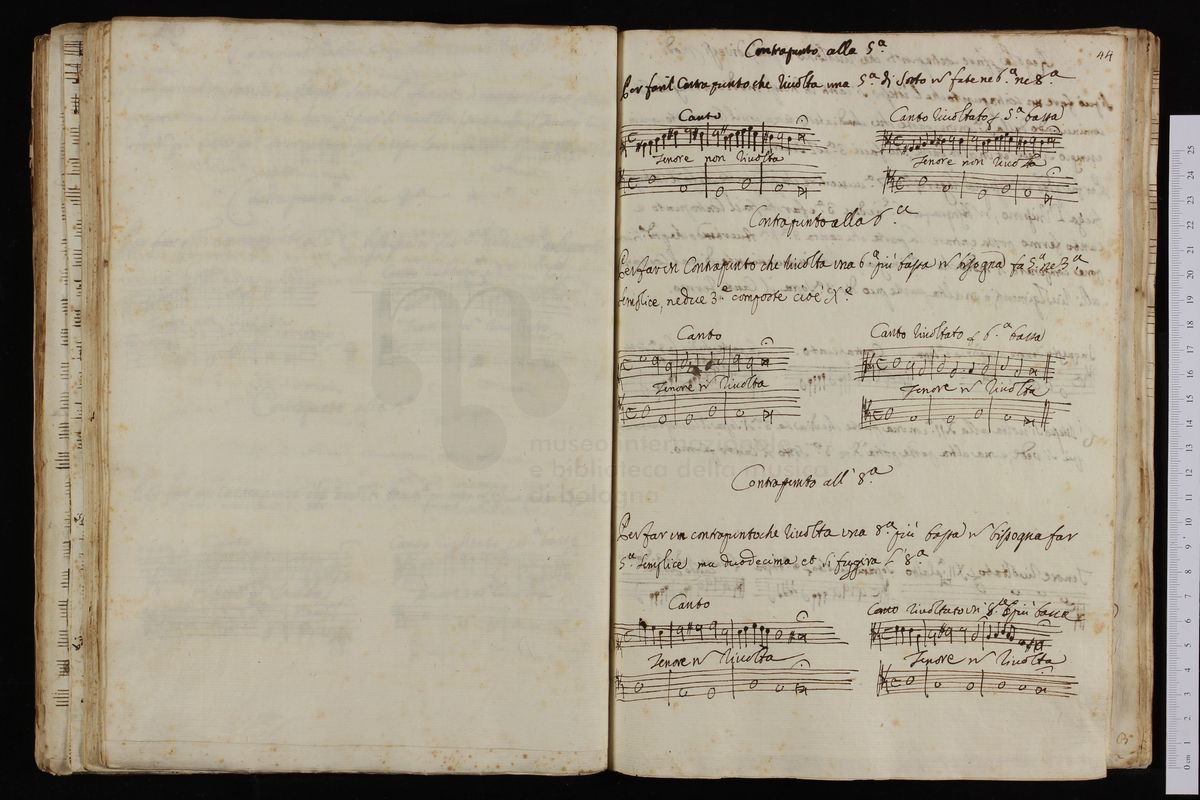 44
Contrapunto alla 5.ª
Per far il Contrapunto che rivolta una 5.ª di sotto nō fate ne 6.ª ne 8.ª
Canto
Tenore non rivolta
Canto rivoltato 5.ª bassa
Tenore non rivolta
Contrapunto alla 6.ª
Per far un Contrapunto che rivolta una 6.ª più bassa nō bisogna fa 5.ª ne 3.ª
semplice, ne due 3.e composte cioè X.e
Canto
Tenore nō rivolta
Canto rivoltato 6.ª bassa
Tenore nō rivolta
Contrapunto all' 8.ª
Per far un contrapunto che rivolta una 8.ª più bassa nō bissogna far
5.ª semplice ma duodecima et si fuggira l' 8.ª
Canto
Tenore nō rivolta
Canto rivoltato un' 8.ª più bassa
Tenore nō rivolta
museo internazionale
e biblioteca della musica
di bologna
0 cm 1 2 3 4 5 6 7 8 9 10 11 12 13 14 15 16 17 18 19 20 21 22 23 24 25